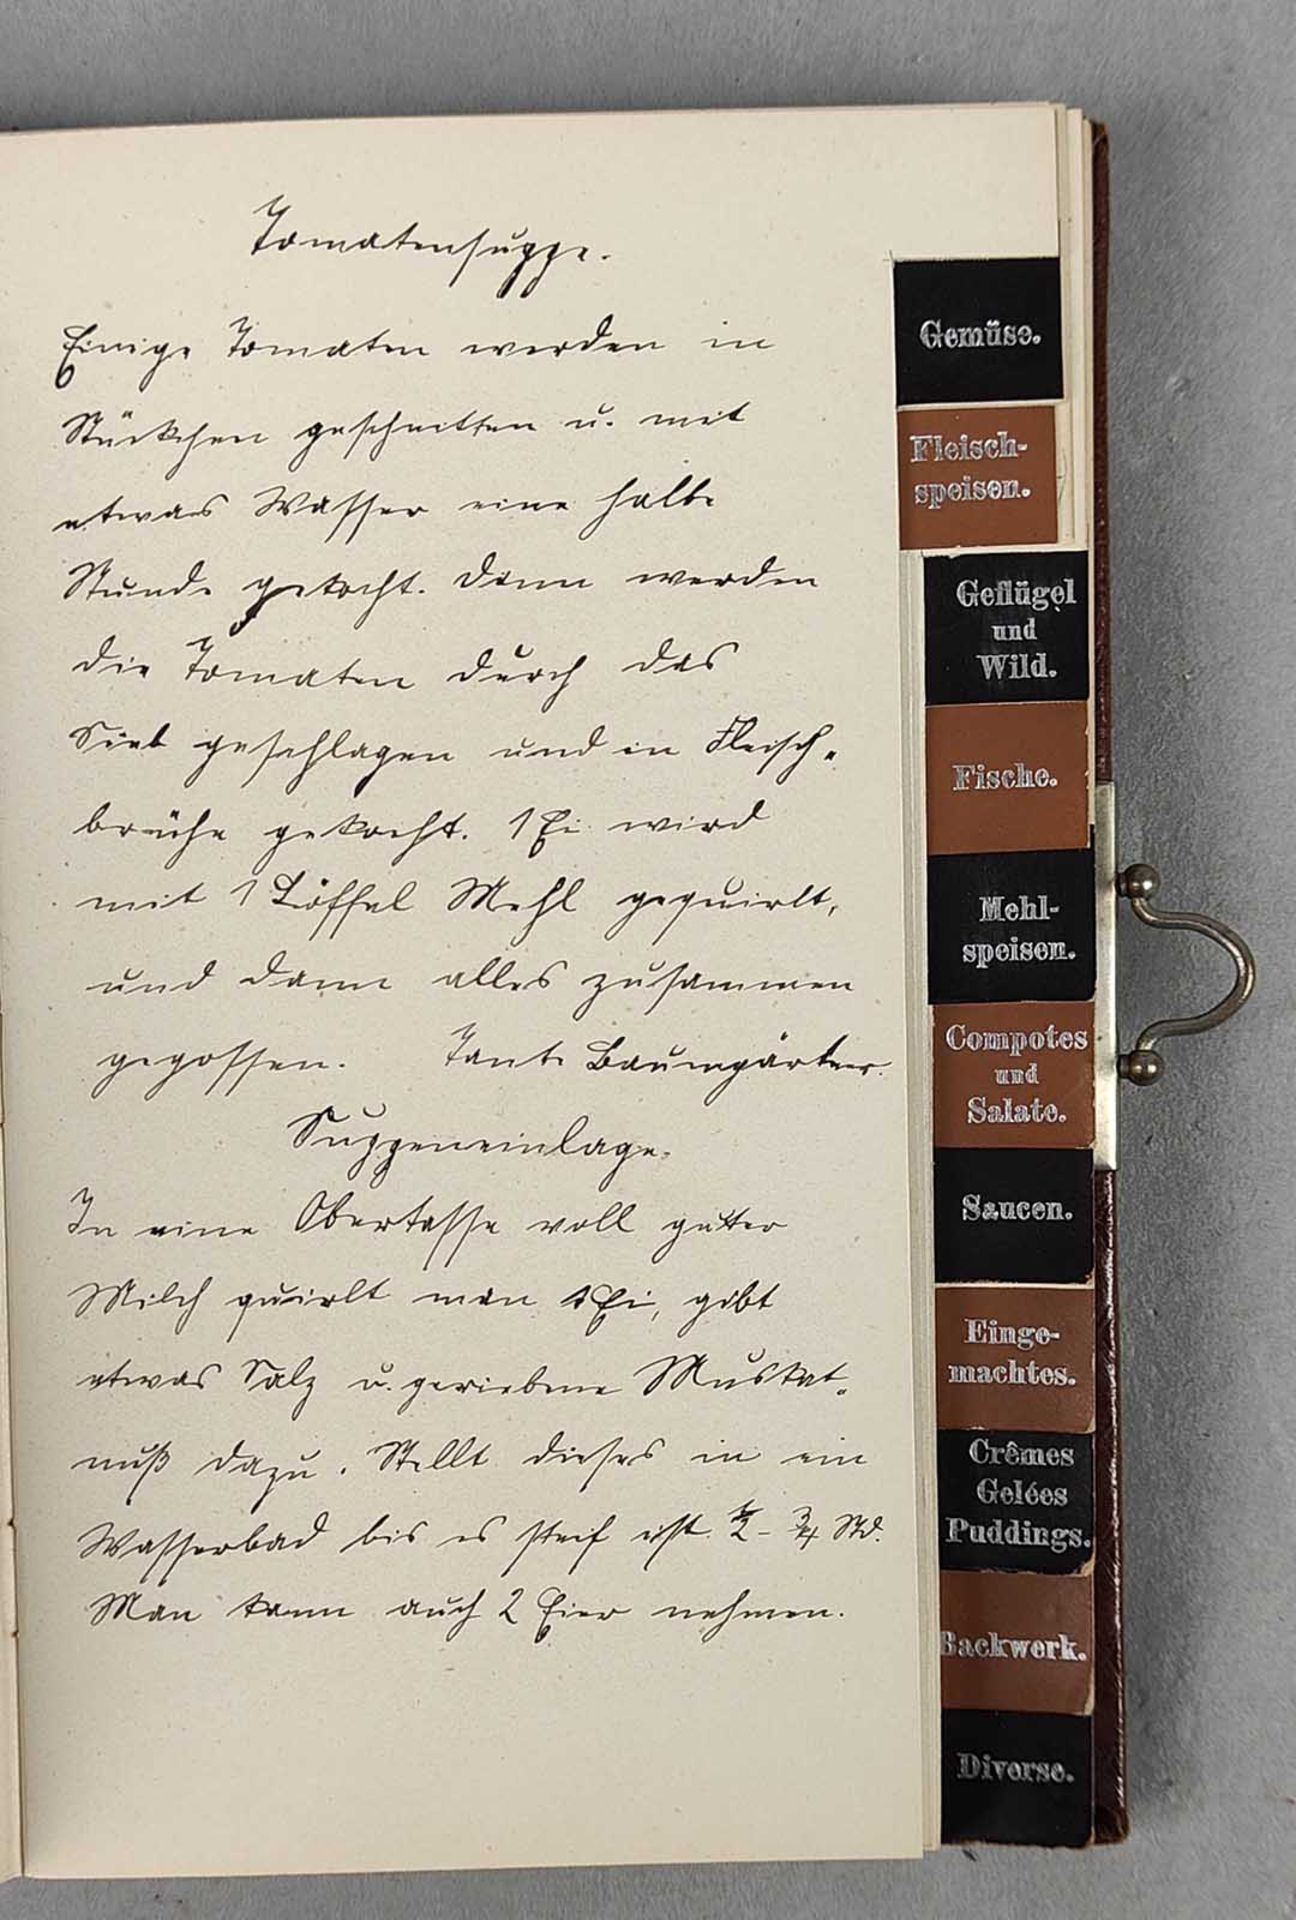 Tomatensuppe.
Einige Tomaten werden in
Stückchen geschnitten u. mit
etwas Wasser eine halbe
Stunde gekocht. Dann werden
die Tomaten durch das
Sieb geschlagen und in Fleisch-
brühe gekocht. 1 Ei wird
mit 1 Löffel Mehl gequirlt,
und dann alles zusammen
gegossen. Tante Baumgärtner.
Suppeneinlage.
In eine Obertasse voll guter
Milch quirlt man 1 Ei, gibt
etwas Salz u. geriebene Muskat-
nuß dazu. Stellt dieses in ein
Wasserbad bis es steif ist ½ - ¾ Std.
Man kann auch 2 Eier nehmen.
Gemüse.
Fleisch-
speisen.
Geflügel
und
Wild.
Fische.
Mehl-
speisen.
Compotes
und
Salate.
Saucen.
Einge-
machtes.
Crêmes
Gelées
Puddings.
Backwerk.
Diverse.